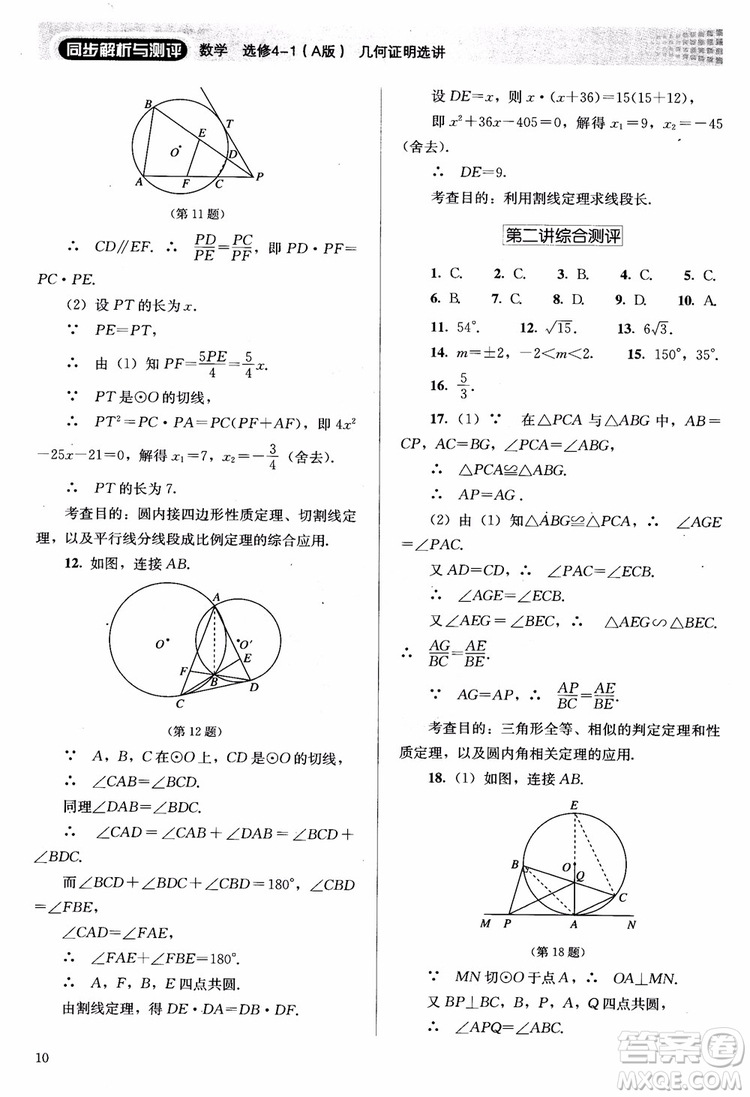 同步解析与测评 数学 选修4-1(A版) 几何证明选讲
B
T
E
O
D
A
F
C
P
(第11题)
∴ CD∥EF. ∴ PD/PE=PC/PF, 即 PD·PF=
PC·PE.
(2) 设 PT 的长为 x.
∵ PE=PT,
∴ 由(1)知 PF=5PE/4=5/4 x.
∵ PT 是⊙O 的切线,
∴ PT²=PC·PA=PC(PF+AF), 即 4x²
-25x-21=0, 解得 x₁=7, x₂=-3/4 (舍去).
∴ PT 的长为 7.
考查目的: 圆内接四边形性质定理、切割线定
理, 以及平行线分线段成比例定理的综合应用.
12. 如图, 连接 AB.
A
O
O′
E
F
B
D
C
(第12题)
∵ A, B, C 在⊙O 上, CD 是⊙O 的切线,
∴ ∠CAB=∠BCD.
同理∠DAB=∠BDC.
∴ ∠CAD=∠CAB+∠DAB=∠BCD+
∠BDC.
而∠BCD+∠BDC+∠CBD=180°, ∠CBD
=∠FBE,
∠CAD=∠FAE,
∴ ∠FAE+∠FBE=180°.
∴ A, F, B, E 四点共圆.
由割线定理, 得 DE·DA=DB·DF.
10
设 DE=x, 则 x·(x+36)=15(15+12),
即 x²+36x-405=0, 解得 x₁=9, x₂=-45
(舍去).
∴ DE=9.
考查目的: 利用割线定理求线段长.
第二讲综合测评
1. C. 2. C. 3. B. 4. C. 5. C.
6. B. 7. D. 8. D. 9. D. 10. A.
11. 54°. 12. √15. 13. 6√3.
14. m=±2, -2<m<2. 15. 150°, 35°.
16. 5/3.
17. (1) ∵ 在△PCA 与△ABG 中, AB=
CP, AC=BG, ∠PCA=∠ABG,
∴ △PCA≌△ABG.
∴ AP=AG.
(2) 由(1)知△ABG≌△PCA, ∴ ∠AGE
=∠PAC.
又 AD=CD, ∴ ∠PAC=∠ECB.
∴ ∠AGE=∠ECB.
又∠AEG=∠BEC, ∴ △AEG∽△BEC.
∴ AG/BC=AE/BE.
∵ AG=AP, ∴ AP/BC=AE/BE.
考查目的: 三角形全等、相似的判定定理和性
质定理, 以及圆内角相关定理的应用.
18. (1) 如图, 连接 AB.
E
B
O
Q
C
M
P
A
N
(第18题)
∵ MN 切⊙O 于点 A, ∴ OA⊥MN.
又 BP⊥BC, ∴ B, P, A, Q 四点共圆,
∴ ∠APQ=∠ABC.
答案圈
MXQE.COM